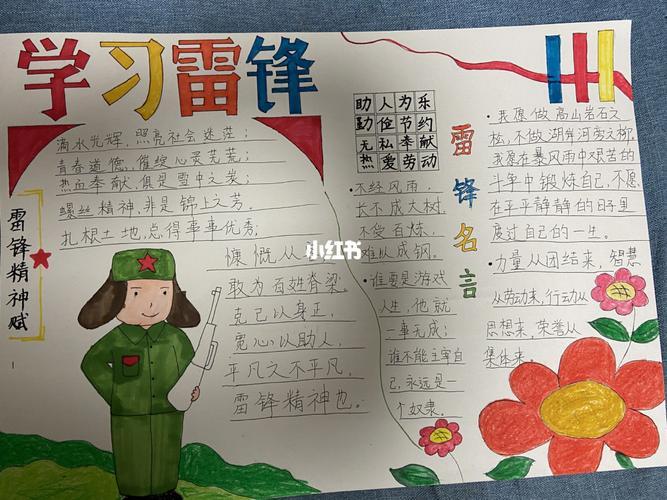 学习雷锋
雷锋精神赋
滴水光辉,照亮社会迷茫;
青春道德,催绽心灵芜荒;
热血奉献,俱是雪中之炭;
螺丝精神,非是锦上之芳。
扎根土地,总得事事优秀;
慷慨从
敢为百姓脊梁。
克己以身正,
宽心以助人,
平凡又不平凡,
雷锋精神也。
小红书
助人为乐
勤俭节约
无私奉献
热爱劳动
雷锋名言
·不经风雨,
长不成大树,
不受百炼,
难以成钢。
·谁要是游戏
人生,他就
一事无成;
谁不能主宰自
己,永远是一
个奴隶。
·我愿做高山岩石之
松,不做湖岸河旁之柳。
我愿在暴风雨中艰苦的
斗争中锻炼自己,不愿
在平平静静的日子里
度过自己的一生。
·力量从团结来,智慧
从劳动来,行动从
思想来,荣誉从
集体来。